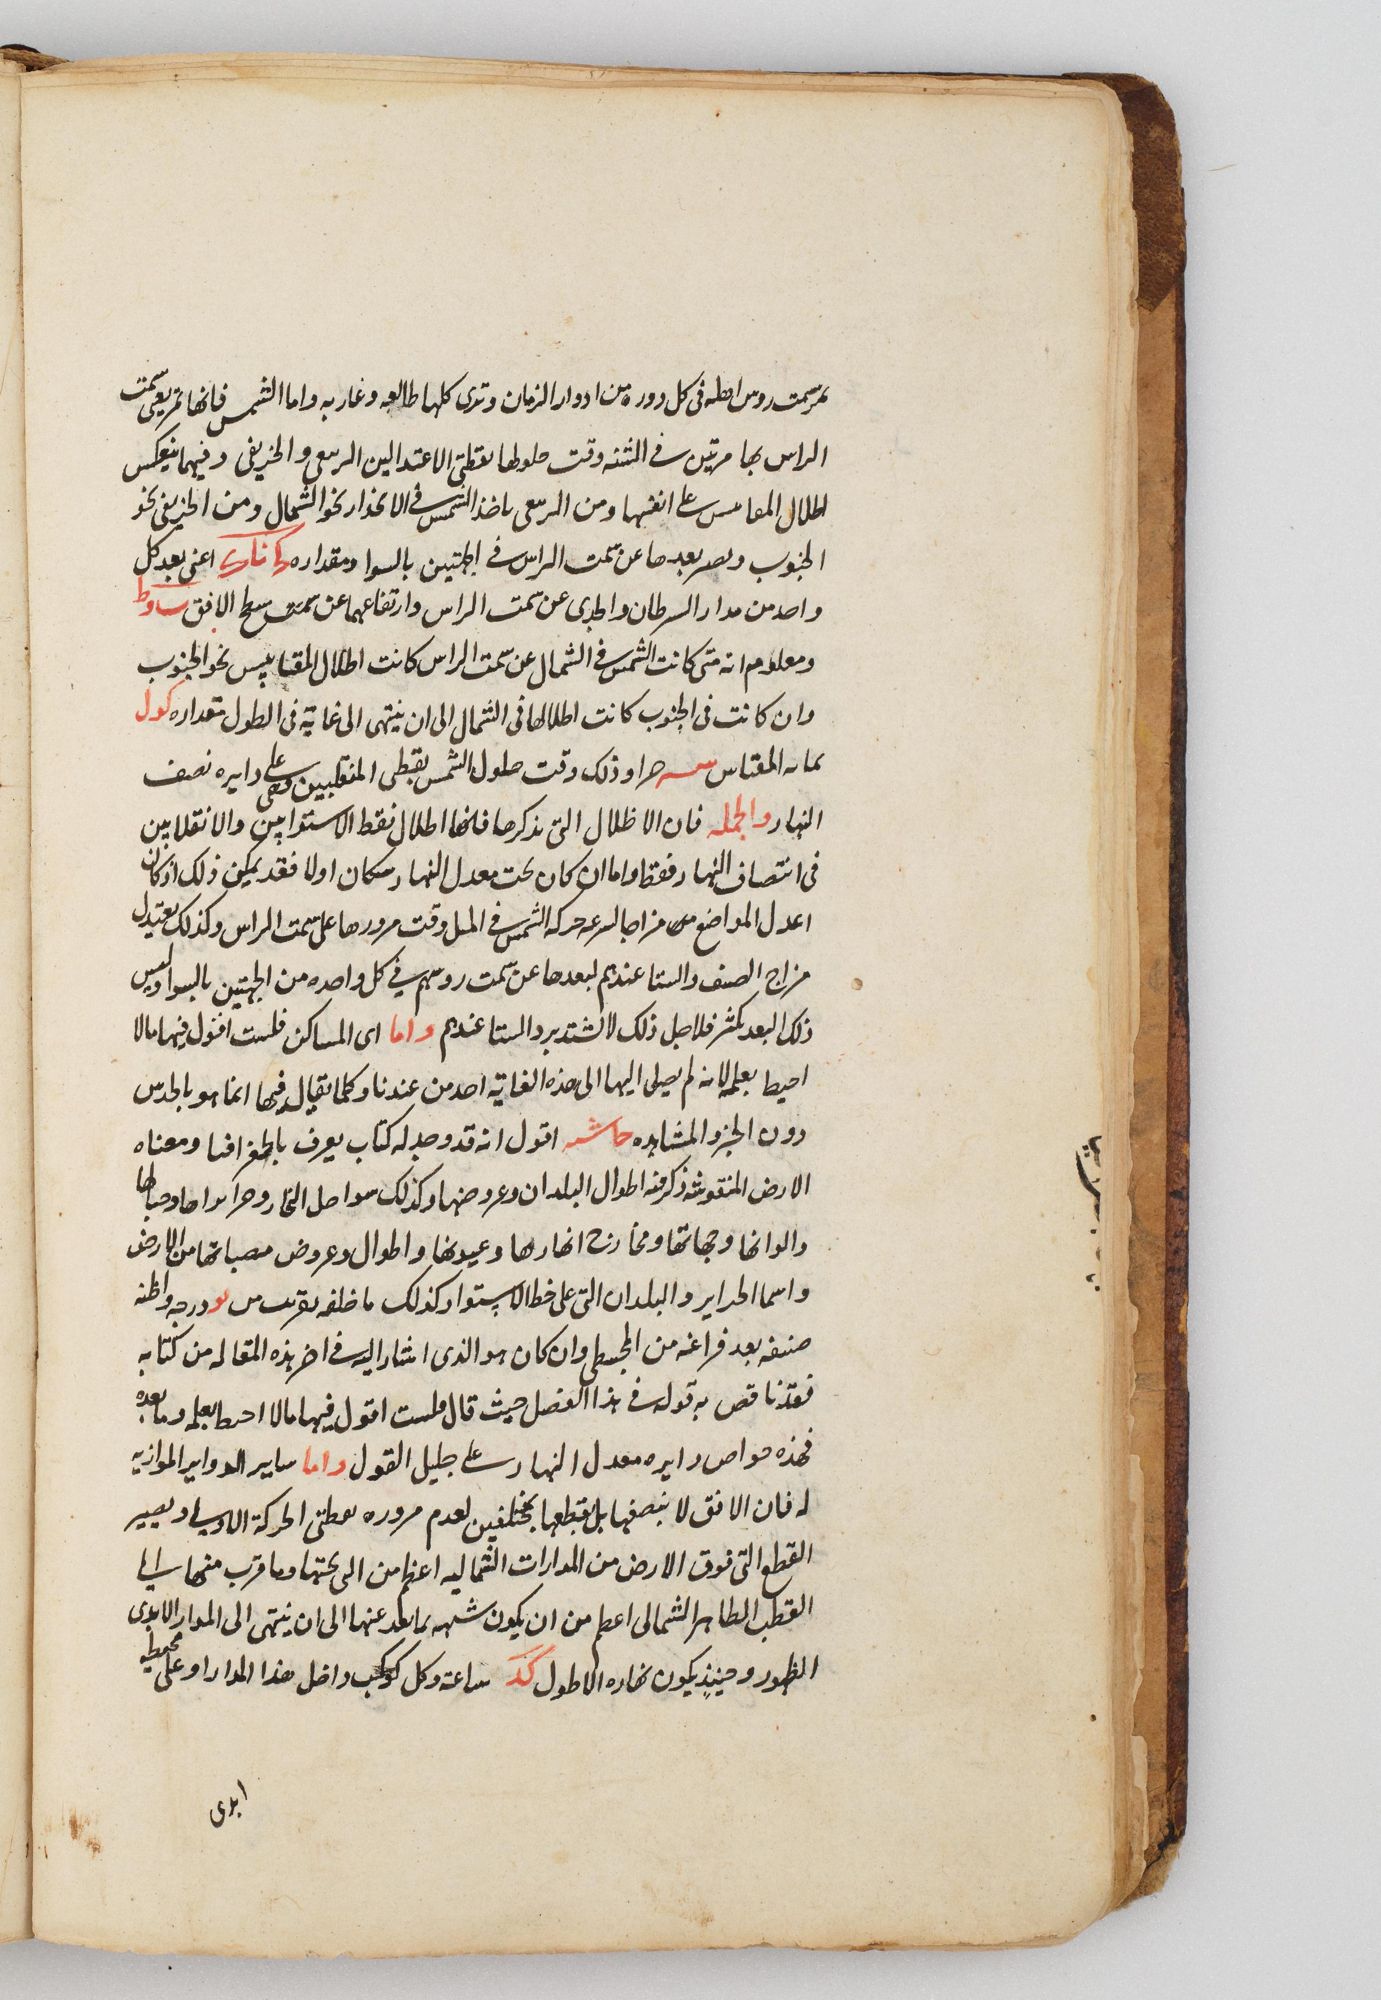 تمر بسمت روس اهله فى كل دوره من ادوار الزمان وترى كلها طالعه وغاربه واما الشمس فانها تمر بعى سمت
الراس بها مرتين فى السنه وقت حلولها نقطتى الاعتدالين الربيعى والخريفى وفيهما ينعكس
اظلال المقاييس على انفسها ومن الربيعى ياخذ الشمس فى الانحدار نحو الشمال ومن الخريفى نحو
الجنوب ويصير بعدها عن سمت الراس فى الجهتين بالسوا ومقداره اعنى بعد كل
واحد من مدار السرطان والجدى عن سمت الراس وارتفاعهما عن سمت سطح الافق
ومعلوم انه متى كانت الشمس فى الشمال عن سمت الراس كانت اظلال المقاييس نحو الجنوب
وان كانت فى الجنوب كانت اظلالها فى الشمال الى ان ينتهى الى غاية فى الطول مقداره
بما به المقياس جزاو ذلك وقت حلول الشمس بنقطتى المنقلبين على دايره نصف
النهار وبالجمله فان الاظلال التى نذكرها فانها اظلال نقط الاستوايين والانقلابين
فى انتصاف النهار فقط واما ان كان تحت معدل النهار سكان اولا فقد يمكن ذلك اذ كان
اعدل المواضع مزاجا لسرعه حركه الشمس فى الميل وقت مرورها على سمت الراس وكذلك يعتدل
مزاج الصيف والستا عندهم لبعدها عن سمت روسهم فى كل واحده من الجهتين بالسوا وليس
ذلك البعد بكثير فلاجل ذلك لا يشتد برد الستا عندهم واما اى المساكن فلست اقول فيها ما لا
احيط بعلمه لانه لم يصل اليها الى هذه الغايه احد من عندنا وكلما يقال فيها انما هو بالحدس
دون الخبر والمشاهده حاشيه اقول انه قد وجد له كتاب يعرف بالجغرافيا ومعناه
الارض المنقوشه ذكر فيه اطوال البلدان وعروضها وكذلك سواحل البحار وجزايرها وجبالها
والوانها وجهاتها ومخارج انهارها وعيونها واطوال وعروض مصباتها من الارض
واسما الجزاير والبلدان التى على خط الاستوا وكذلك ما خلفه بقريب من يو درجه واظنه
صنفه بعد فراغه من المجسطى وان كان هو الذى اشار اليه فى اخر هذه المقاله من كتابه
فقد ناقص به قوله فى هذا الفصل حيث قال فلست اقول فيها ما لا احيط بعلمه وما بعده
فهذه خواص دايره معدل النهار على جليل القول واما ساير الدواير الموازيه
له فان الافق لا ينصفها بل يقطعها بمختلفين لعدم مروره بقطبى الحركة الاولى ويصير
القطع التى فوق الارض من المدارات الشماليه اعظم من التى تحتها وما قرب منها الى
القطب الظاهر الشمالى اعظم من ان يكون شبيه ما بعد عنها الى ان ينتهى الى المدار الابدى
الظهور وحينيذ يكون نهاره الاطول كد ساعة وكل كوكب داخل هذا المدار او على محيطه
ابدى